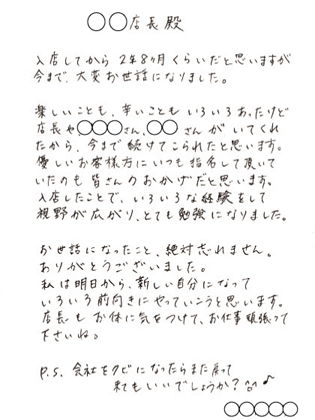 ○○店長殿
入店してから2年8ヶ月くらいだと思いますが
今まで、大変お世話になりました。
楽しいことも、辛いこともいろいろあったけど
店長や○○○さん、○○さんがいてくれ
たから、今まで続けてこられたと思います。
優しいお客様方にいつも指名して頂いて
いたのも皆さんのおかげだと思います。
入店したことで、いろいろな経験をして
視野が広がり、とても勉強になりました。
お世話になったこと、絶対忘れません。
ありがとうございました。
私は明日から、新しい自分になって
いろいろ前向きにやっていこうと思います。
店長もお体に気をつけて、お仕事頑張って
下さいね。
P.S. 会社をクビになったらまた戻って
来てもいいでしょうか？^^♪
○○○○○